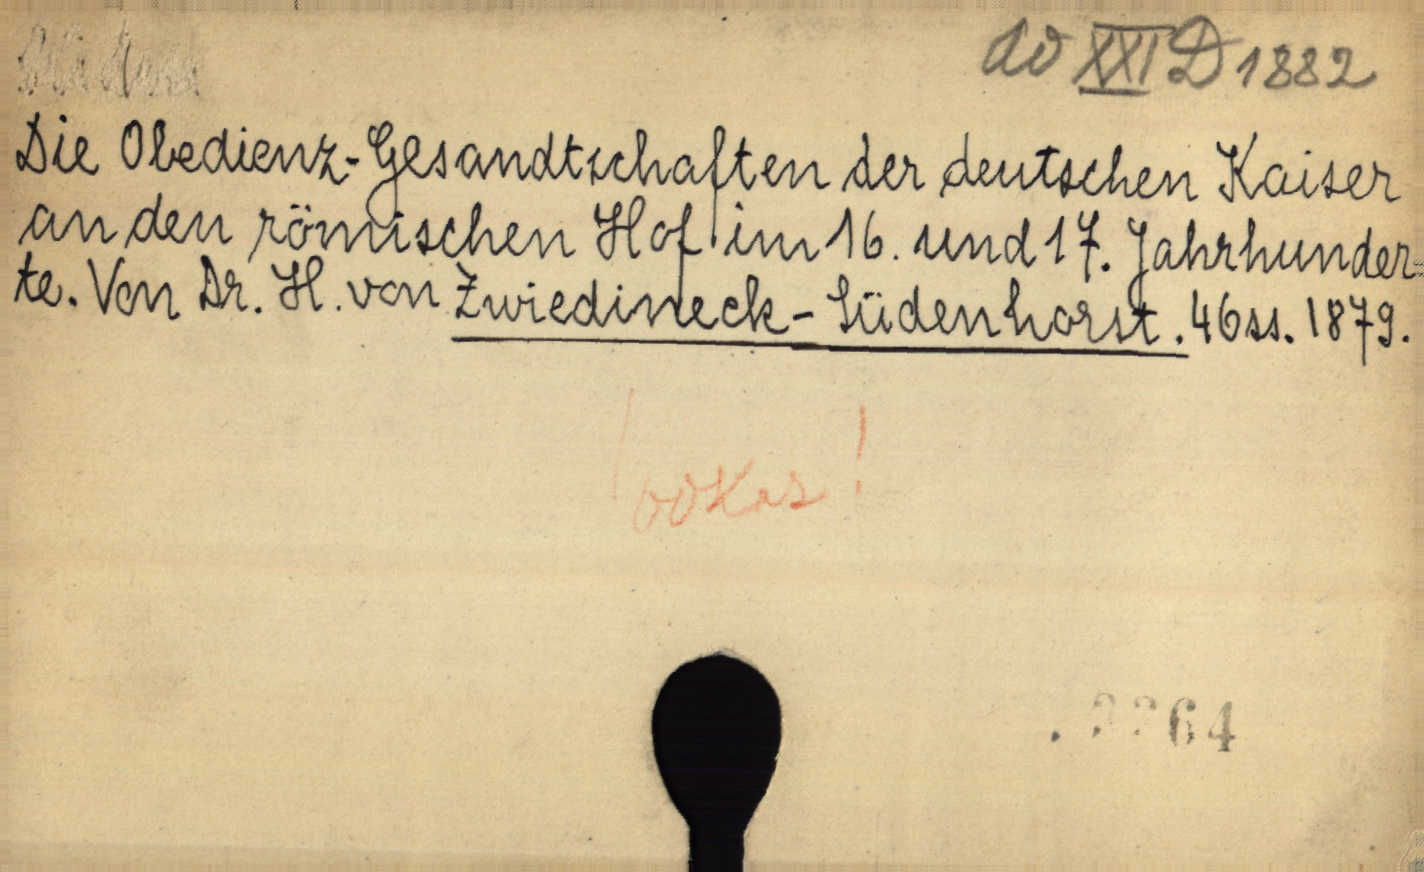 XXI D 1882
Die Obedienz-Gesandtschaften der deutschen Kaiser
an den römischen Hof im 16. und 17. Jahrhunder=
te. Von Dr. H. von Zwiedineck-Südenhorst. 46 ss. 1879.
64